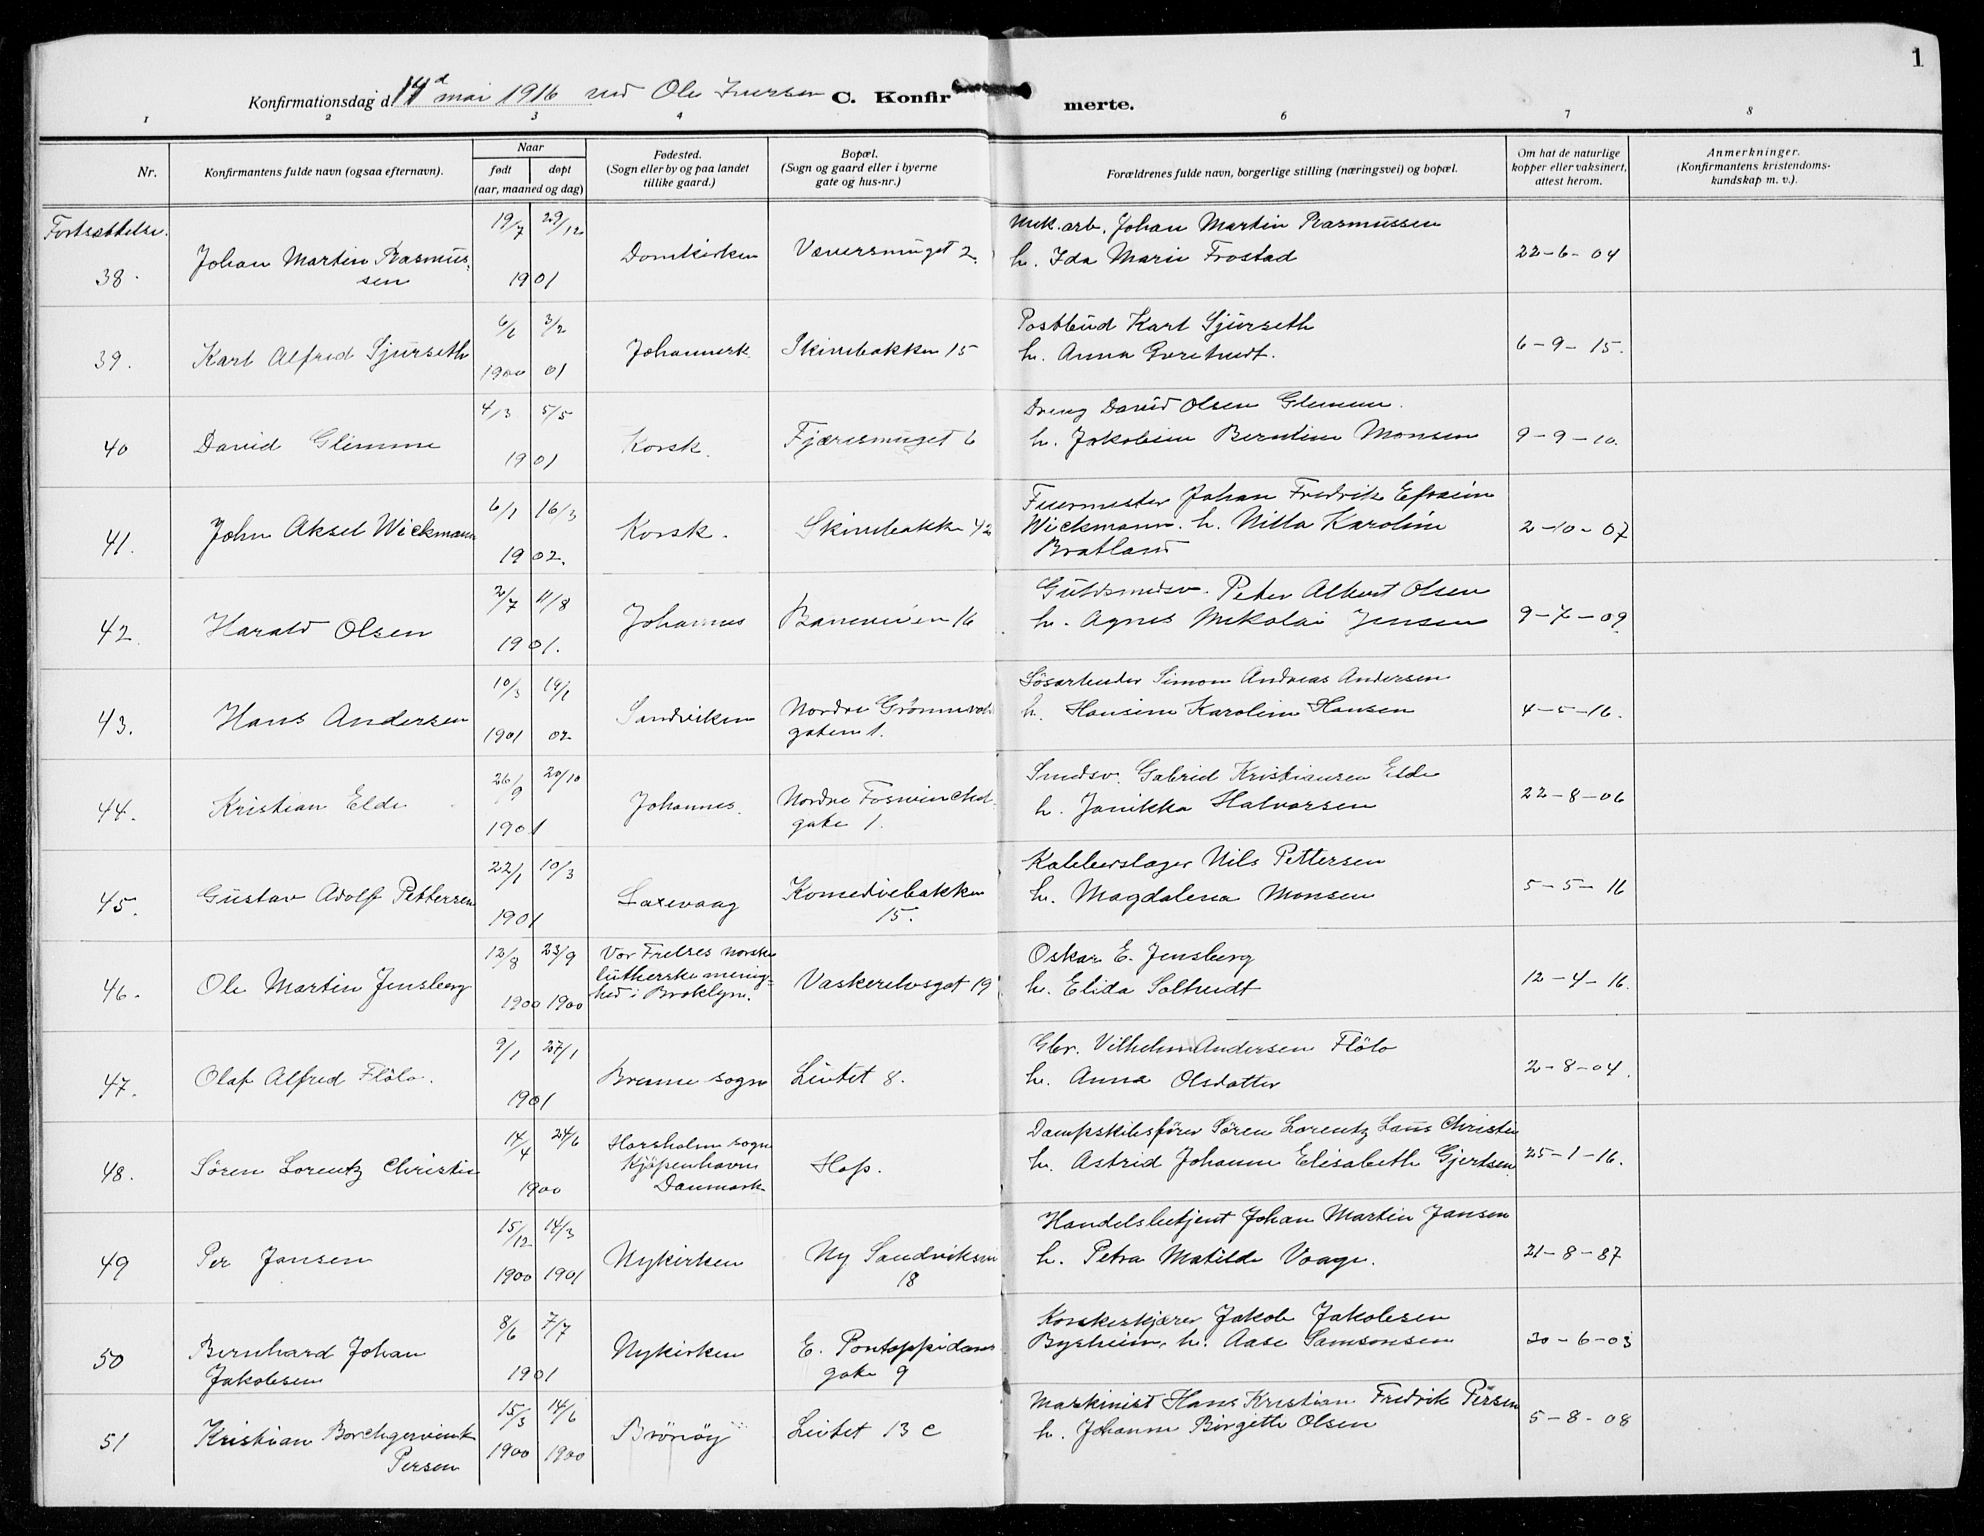 1
Konfirmationsdag d 14d mai 1916 ved Ole Iversen C. Konfirmerte.
1 2 3 4 6 7 8
Nr. Konfirmantens fulde navn (ogsaa efternavn). Naar født døpt (aar, maaned og dag) Fødested. (Sogn eller by og paa landet tillike gaard.) Bopæl. (Sogn og gaard eller i byerne gate og hus-nr.) Forældrenes fulde navn, borgerlige stilling (næringsvei) og bopæl. Om hat de naturlige kopper eller vaksinert, attest herom. Anmerkninger. (Konfirmantens kristendoms-kundskap m. v.).
Fortsættelse.
38. Johan Martin Rasmussen 19/7 29/12 1901 Domkirken Væversmuget 2. Mek. arb. Johan Martin Rasmussen
h. Ida Marie Frostad 22-6-04
39. Karl Alfred Sjurseth 6/1 3/2 1900 01 Johannesk. Skivebakken 15 Postbud Karl Sjurseth
h. Anna 6-9-15.
40 David Glimme 4/3 5/5 1901 Korsk. Fjæresmuget 6 Dreng David Olsen Glimme.
h. Jakobine Berntine Monsen 9-9-10.
41. John Aksel Wickmann 6/1 16/3 1902. Korsk. Skivebakken 42 Fuermester Johan Fredrik Efraim
Wickmann. h. Nilla Karoline
Bratland 2-10-07
42. Harald Olsen 2/7 11/8 1901. Johannes Baneveien 16 Guldsmedsv. Peter Albert Olsen
h. Agnes Nikolai Jensen 9-7-09.
43. Hans Andersen 10/3 19/1 1901 02 Sandviken Nordre
gaten 1. Løsarbeider Simon Andreas Andersen
h. Hansine Karoline Hansen 4-5-16.
44. Kristian Elde 26/9 20/10 1901 Johannes. Nordre
gate 1. Smedsv. Gabriel Kristiansen Elde
h. Janikka Halvorsen 22-8-06
45. Gustav Adolf Pettersen 22/1 10/3 1901 Laxevaag Komediebakken
15. Kobberslager Nils Pettersen
h. Magdalena Monsen 5-5-16
46. Ole Martin Jensberg 12/8 23/9 1900 1900 Vor Frelses norske
lutherske menig-
hed i Broklyn. Vaskerelvsgat 19 Oskar E. Jensberg
h. Elida Soltvedt 12-4-16.
47. Olaf Alfred Flölo. 9/1 27/1 1901 Bremne sogn Livtet 8. Gbr. Vilhelm Andersen Flölo
h. Anna Olsdatter 2-8-04.
48. Sören Lorentz Christie 14/4 24/6 1900 Horsholm sogn
Kjøpenhavn
Danmark Hop. Dampskibsfører Sören Lorentz Lans Christie
h. Astrid Johanne Elisabeth Gjertsen 25-1-16.
49 Per Jansen 15/12 14/3 1900 1901 Nykirken Ny Sandviksvei
18 Handelsbetjent Johan Martin Jansen
h. Petra Matilde Vaage. 21-8-87
50 Bernhard Johan
Jakobsen 8/6 7/7 1901 Nykirken E. Pontoppidans
gate 9 Kuskekjører Jakob Jakobsen
Bysheim, h. Aase Samsonsen 30-6-03
51 Kristian Borchgrevink
Persen 15/3 14/6 1900 1900 Brönöy Livtet 13 c Maskinist Hans Kristian Fredrik Persen
h. Johanne Birgitte Olsen 5-8-08